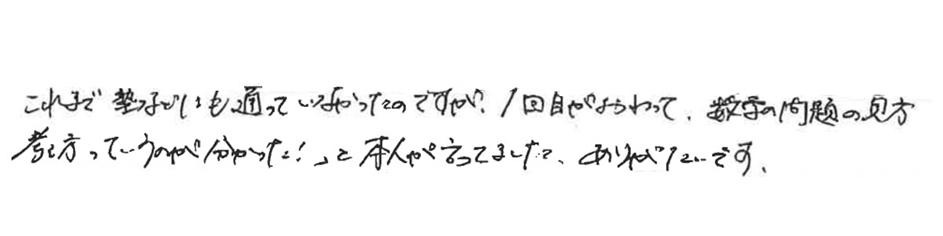 これまで塾などにも通っていなかったのですが、1回目がおわって、数学の問題の見方
考え方っていうのが分かった!、と本人が言ってました、ありがたいです、